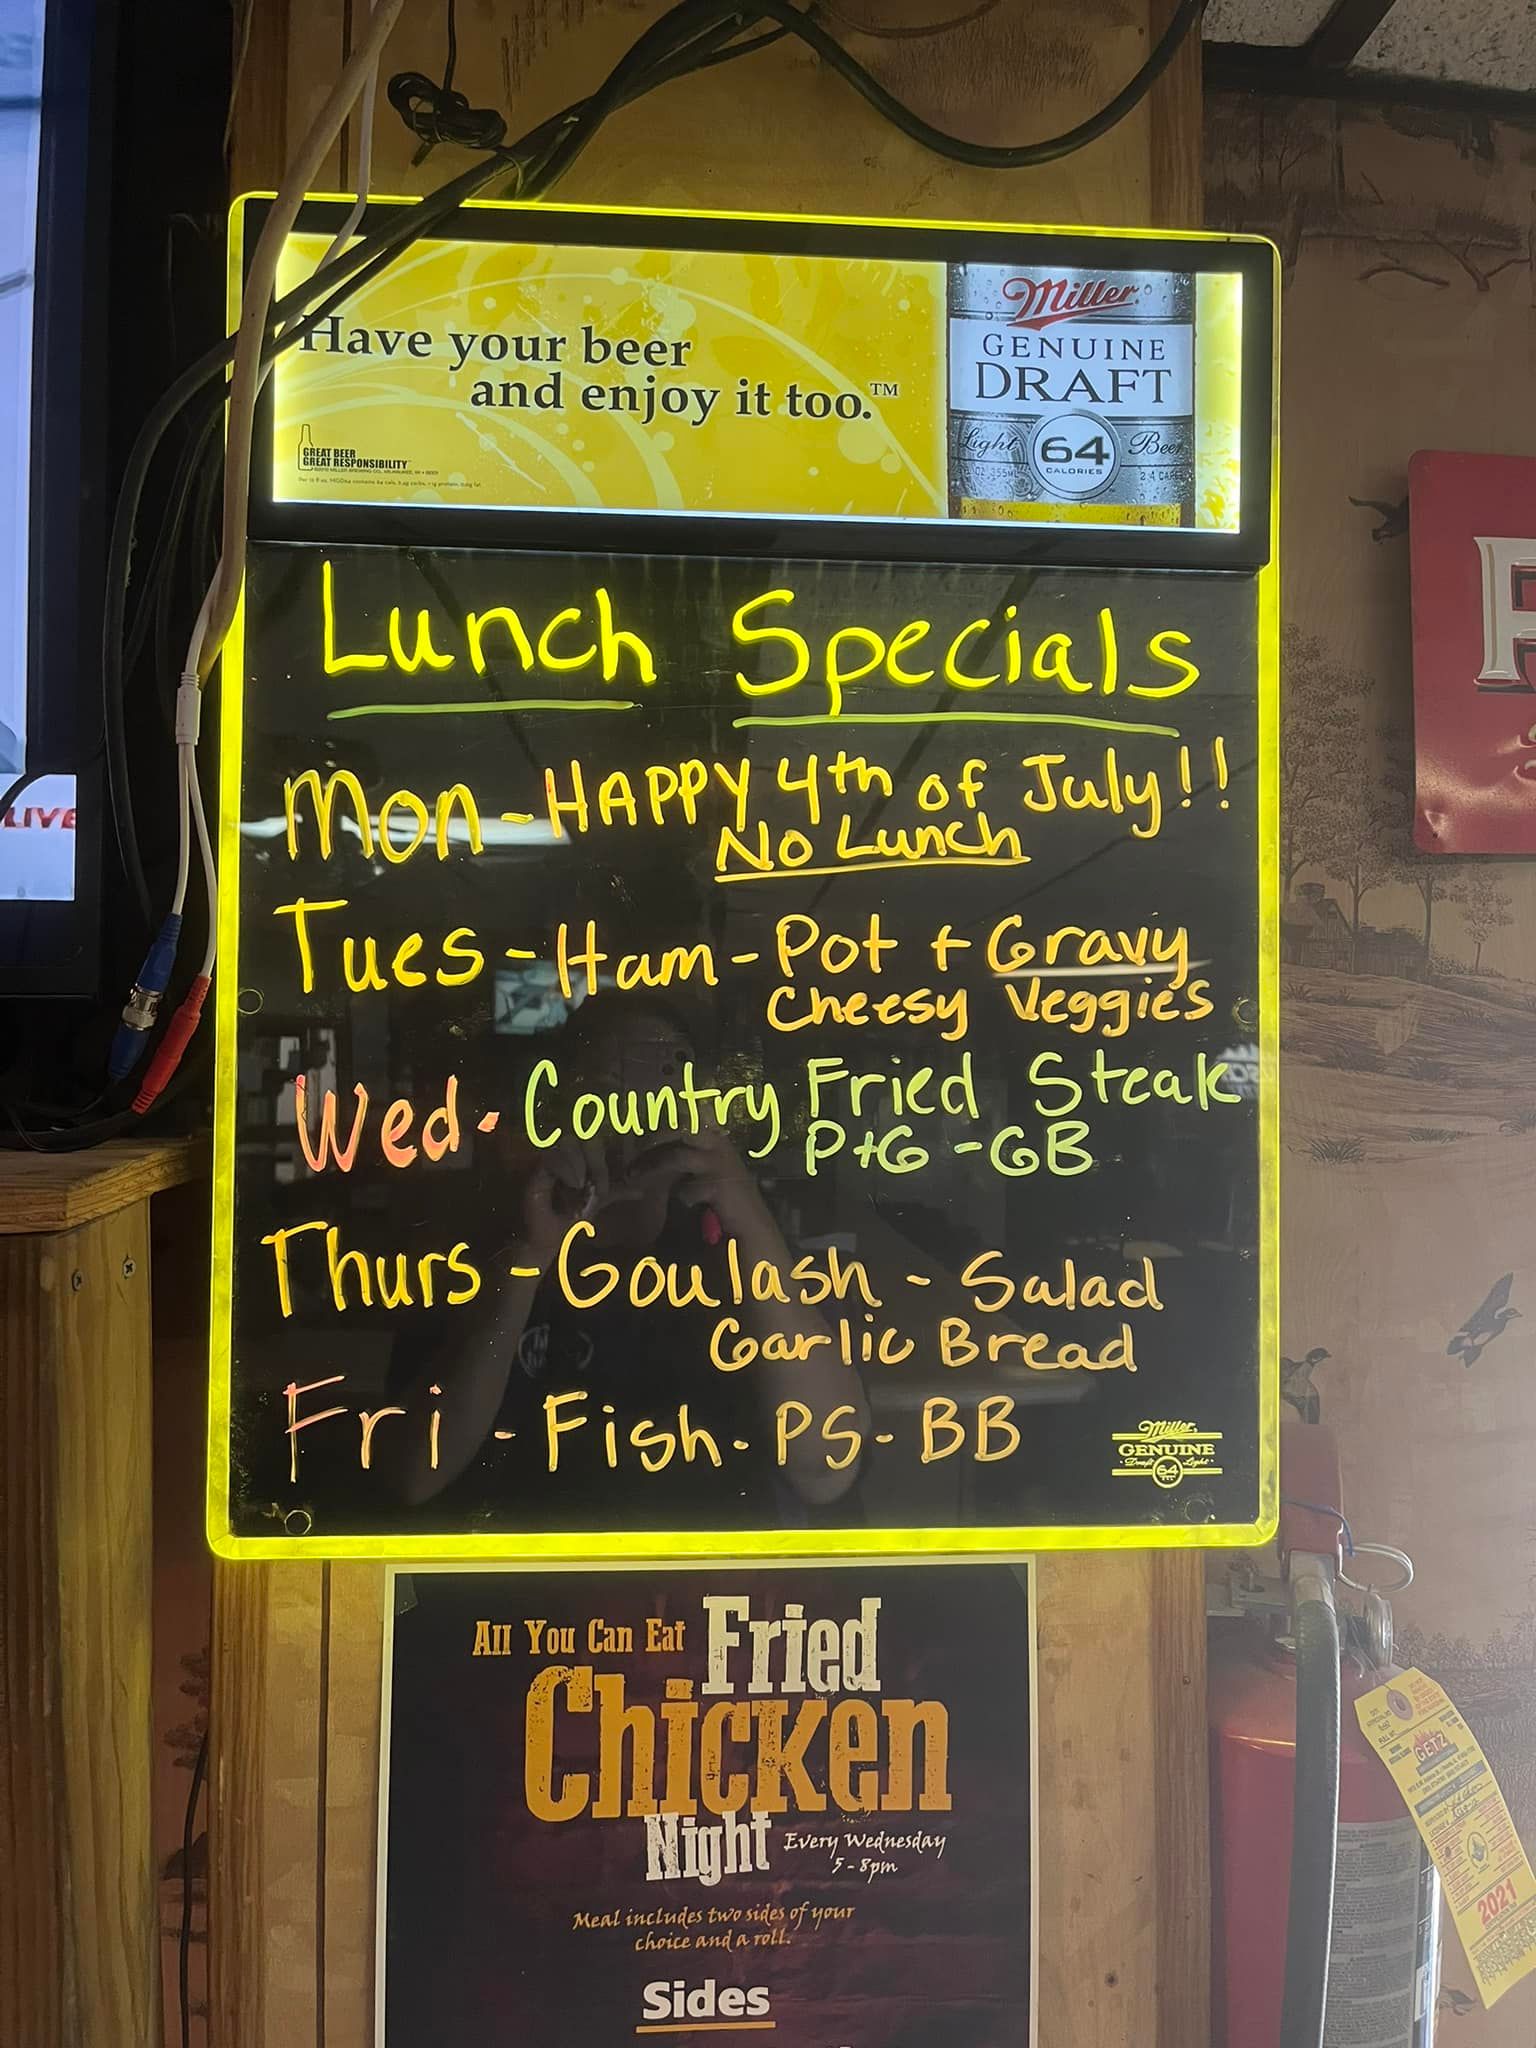 Have your beer
and enjoy it too.™
GREAT BEER
GREAT RESPONSIBILITY
Miller
GENUINE
DRAFT
Light 64 Beer
CALORIES
Lunch Specials
Mon - HAPPY 4th of July!!
No Lunch
Tues - Ham - Pot + Gravy
Cheesy Veggies
Wed. Country Fried Steak
P+G - GB
Thurs - Goulash - Salad
Garlic Bread
Fri - Fish - PS - BB
Miller
GENUINE
Draft 64 Light
LIVE
All You Can Eat Fried
Chicken
Night Every Wednesday
5 - 8pm
Meal includes two sides of your
choice and a roll.
Sides
GETZ
2021